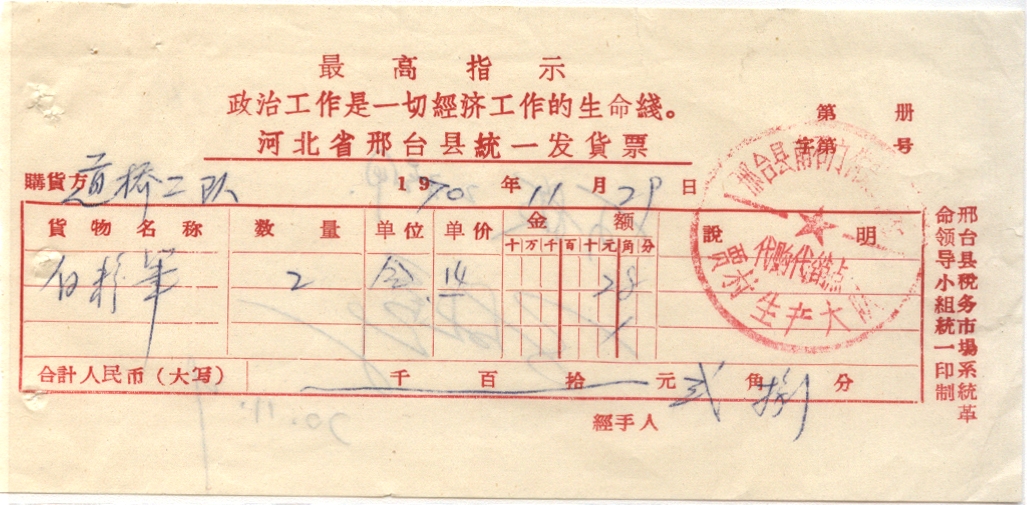 最高指示
政治工作是一切經济工作的生命綫。
河北省邢台县統一发货票
第 册
字第 号
購貨方 道桥二队 1970年11月29日
貨物名称 数量 单位 单价 金额 說明
十万千百十元角分
2 .14 28
合計人民币（大写） 千 百 拾 元 弍 角 捌 分
經手人
邢台县税务市場系統革
命领导小組統一印制
代购代销点
生产大队